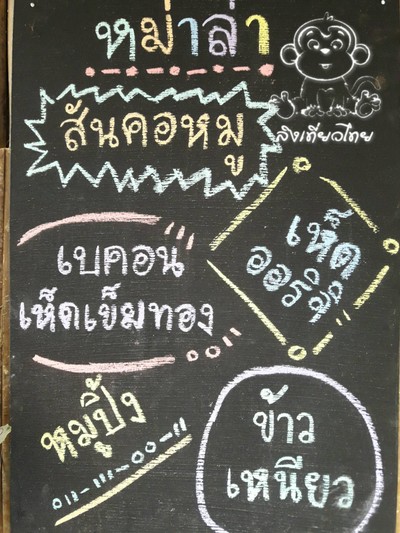 หม่าล่า
สันคอหมู
ลิงเดียวไทย
เห็ด
ออรินจิ
เบคอน
เห็ดเข็มทอง
หมูปิ้ง
ข้าว
เหนียว